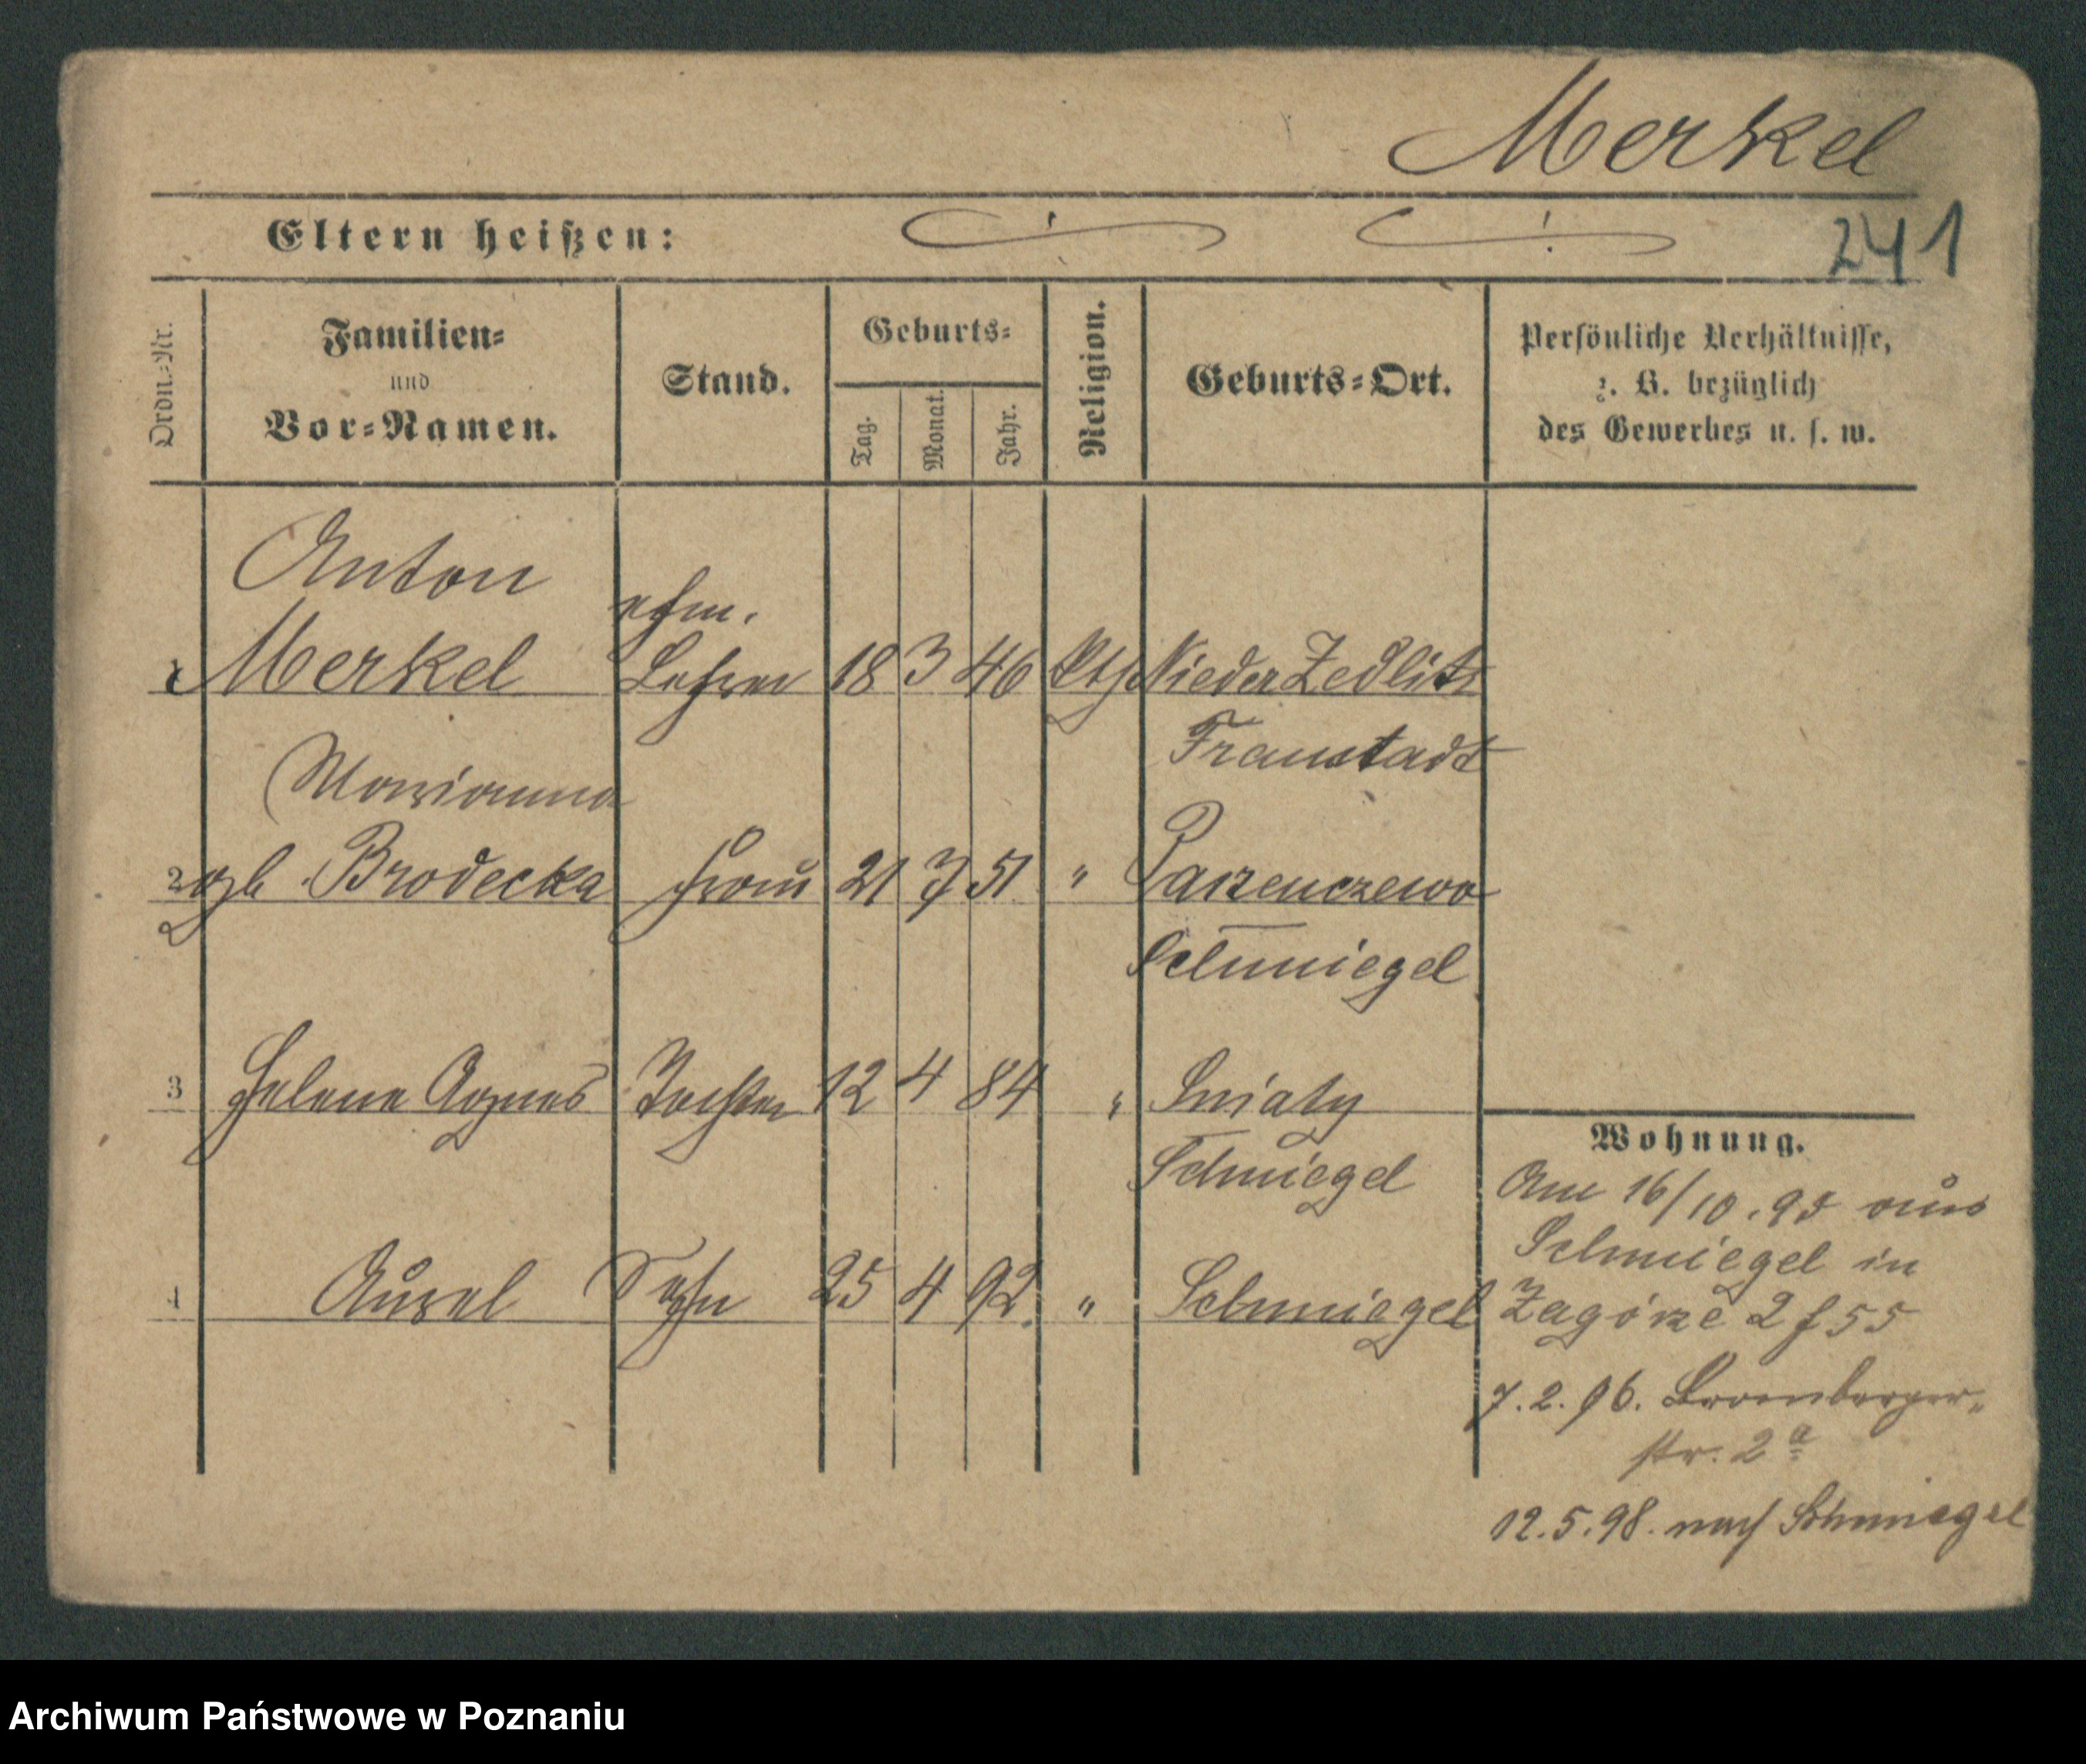 Merkel
Eltern heißen:
241
Ordn.-Nr.
Familien-
und
Vor-Namen.
Stand.
Geburts-
Tag.
Monat.
Jahr.
Religion.
Geburts-Ort.
Persönliche Verhältnisse,
z. B. bezüglich
des Gewerbes u. s. w.
Anton
ehm.
1 Merkel Lehrer 18 3 46 kth Nieder Zedlitz
Fraustadt
Marianna
2 geb. Brodecka Frau 21 7 51 " Parzenczewo
Schmiegel
3 Helene Agnes Tochter 12 4 84 " Sniaty
Schmiegel
4 Aurel Sohn 25 4 92. " Schmiegel
Wohnung.
Am 16/10. 95 aus
Schmiegel in
Zagórze 2 f 55
7.2.96. Bromberger-
str. 2a
12.5.98. nach Schmiegel
Archiwum Państwowe w Poznaniu